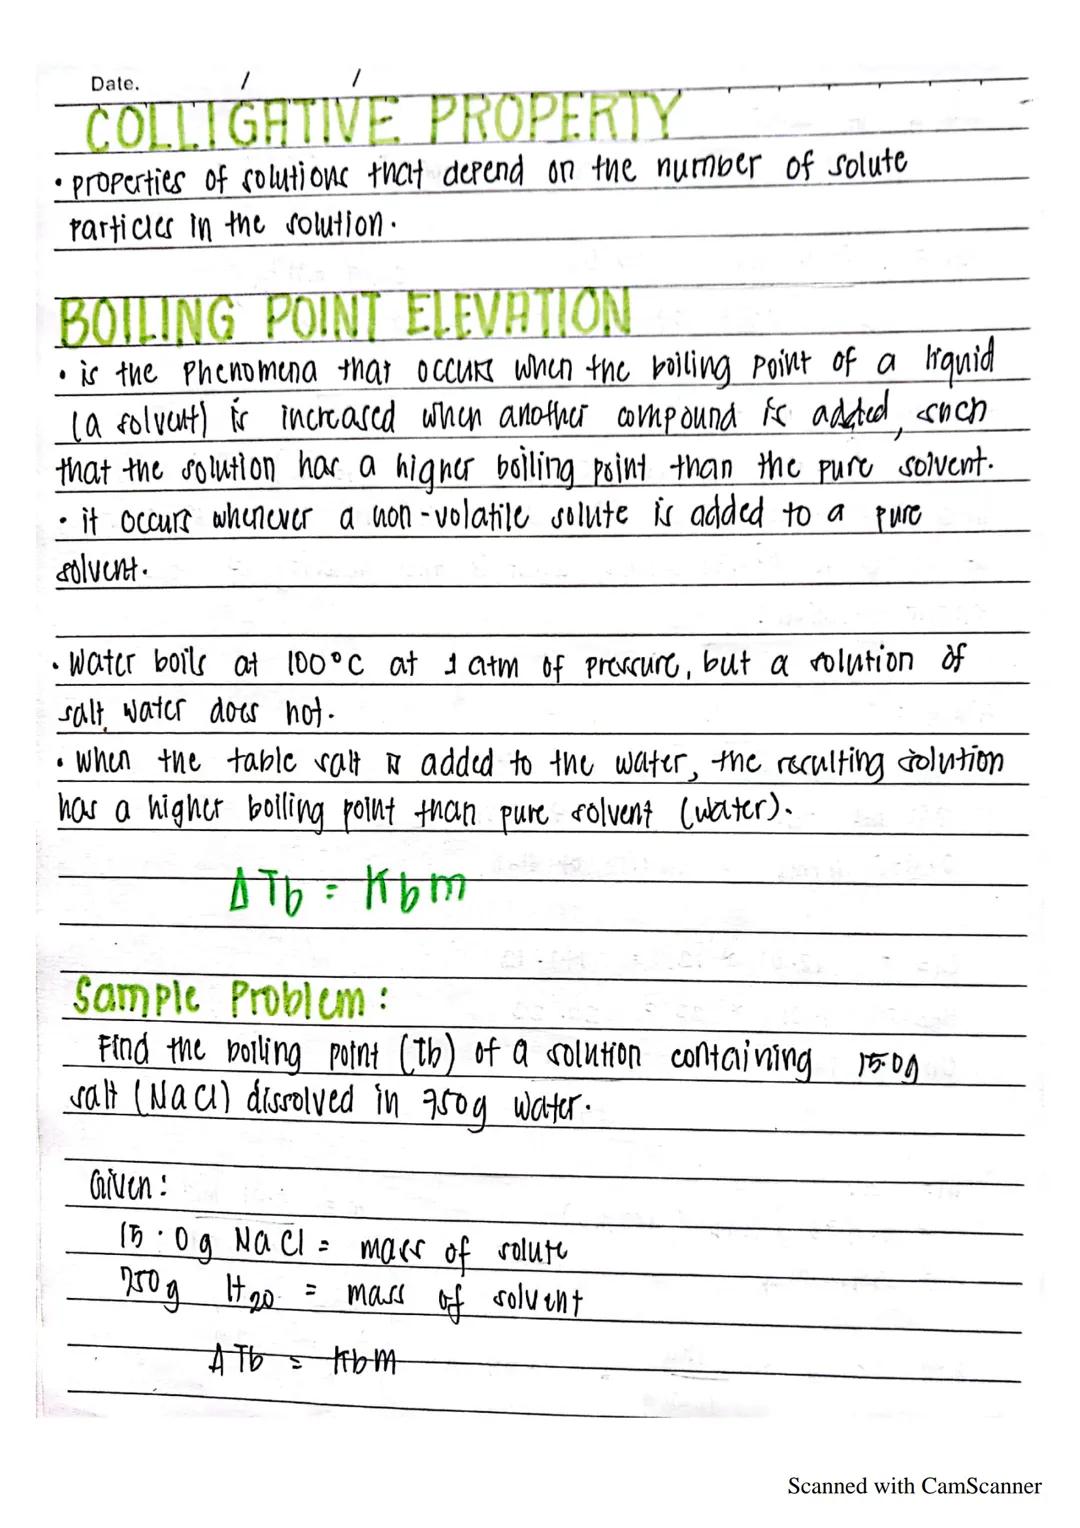 Date. / /
COLLIGATIVE PROPERTY
• properties of solutions that depend on the number of solute
particles in the solution.
BOILING POINT ELEVATION
• is the Phenomena that occurs when the boiling point of a liquid
(a solvent) is increased when another compound is added, such
that the solution has a higher boiling point than the pure solvent.
• it occurs whenever a non-volatile solute is added to a pure
solvent.
• Water boils at 100°C at 1 atm of pressure, but a solution of
salt water does not.
• When the table salt is added to the water, the resulting solution
has a higher boiling point than pure solvent (water).
ΔTb = Kbm
Sample Problem:
Find the boiling point (Tb) of a solution containing 15.0g
salt (NaCl) dissolved in 750g water.
Given:
15.0g NaCl = mass of solute
750g H20 = mass of solvent
ΔTb = Kbm
Scanned with CamScanner